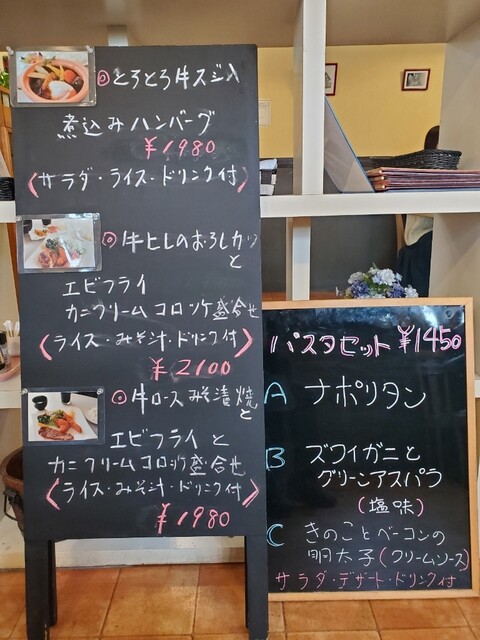 ◎とろとろ牛スジ入
煮込みハンバーグ
¥1980
(サラダ・ライス・ドリンク付)
◎牛ヒレのおろしカツ
と
エビフライ
カニクリームコロッケ盛合せ
(ライス・みそ汁・ドリンク付)
¥2100
◎牛ロースみそ漬焼
と
エビフライと
カニクリームコロッケ盛合せ
(ライス・みそ汁・ドリンク付)
¥1980
パスタセット ¥1450
A ナポリタン
B ズワイガニと
グリーンアスパラ
(塩味)
C きのことベーコンの
明太子(クリームソース)
サラダ・デザート・ドリンク付